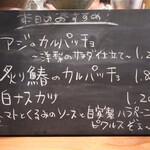 本日のおすすめ
アジのカルパッチョ
〜洋梨のサラダ仕立て〜 1,2
炙り鰆のカルパッチョ 1,8
白ナスカツ 1,2
トマトとくるみのソースと自家製ハラペーニ
ピクルスぞえ〜